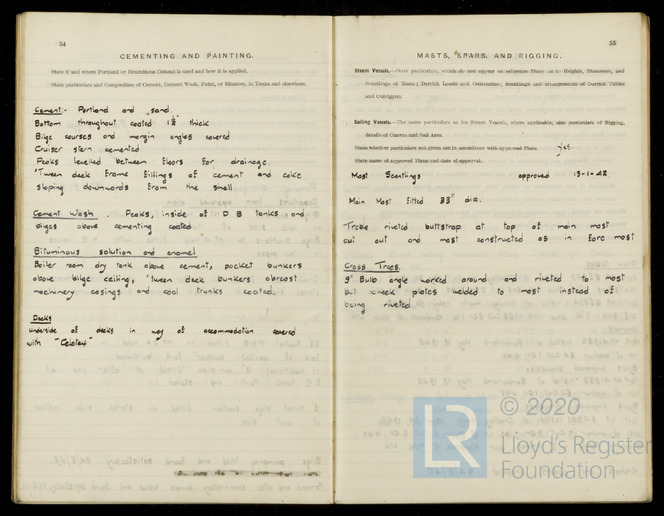 54
CEMENTING AND PAINTING.
State if and where Portland or Bituminous Cement is used and how it is applied.
State particulars and Composition of Cement, Cement Wash, Paint, or Bitumen, in Tanks and elsewhere.
Cement:- Portland and sand.
Bottom throughout coated 1½" thick
Bilge courses and margin angles covered
Cruiser stern cemented
Peaks levelled between floors for drainage.
'Tween deck frame fillings of cement and coke
sloping downwards from the shell.
Cement Wash. Peaks, inside of D B tanks and
bilges above cementing coated
Bituminous solution and enamel
Boiler room dry tank above cement, pocket bunkers
above bilge ceiling, 'tween deck bunkers abreast
machinery casings and coal trunks coated.
Decks
Underside of decks in way of accommodation covered
with "Celotex"
55
MASTS, SPARS, AND RIGGING.
Steam Vessels.—State particulars, which do not appear on reference Plans as to Heights, Diameters, and
Scantlings of Masts; Derrick Loads and Outreaches; scantlings and arrangements of Derrick Tables
and Outriggers.
Sailing Vessels.—The same particulars as for Steam Vessels, where applicable, also particulars of Rigging,
details of Canvas and Sail Area.
State whether particulars not given are in accordance with approved Plans. yes
State name of approved Plans and date of approval.
Mast Scantlings approved 13-1-42
Main Mast fitted 33" dia.
Treble riveted buttstrap at top of main mast
cut out and mast constructed as in fore mast
Cross Trees.
9" Bulb angle worked around and riveted to mast
but cheek plates welded to mast instead of
being riveted.
LR
© 2020
Lloyd's Register
Foundation